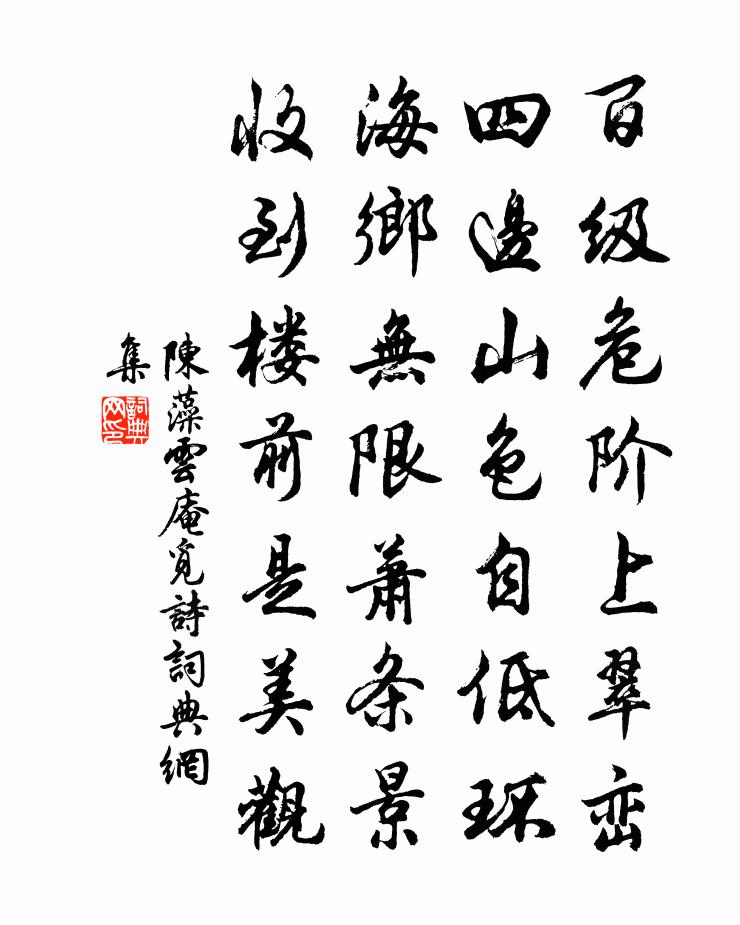 百级危阶上翠峦
四邊山色自低环
海鄉無限蕭条景
收到楼前是美觀
陳藻雲庵覓詩詞典網
集
詞典
网印